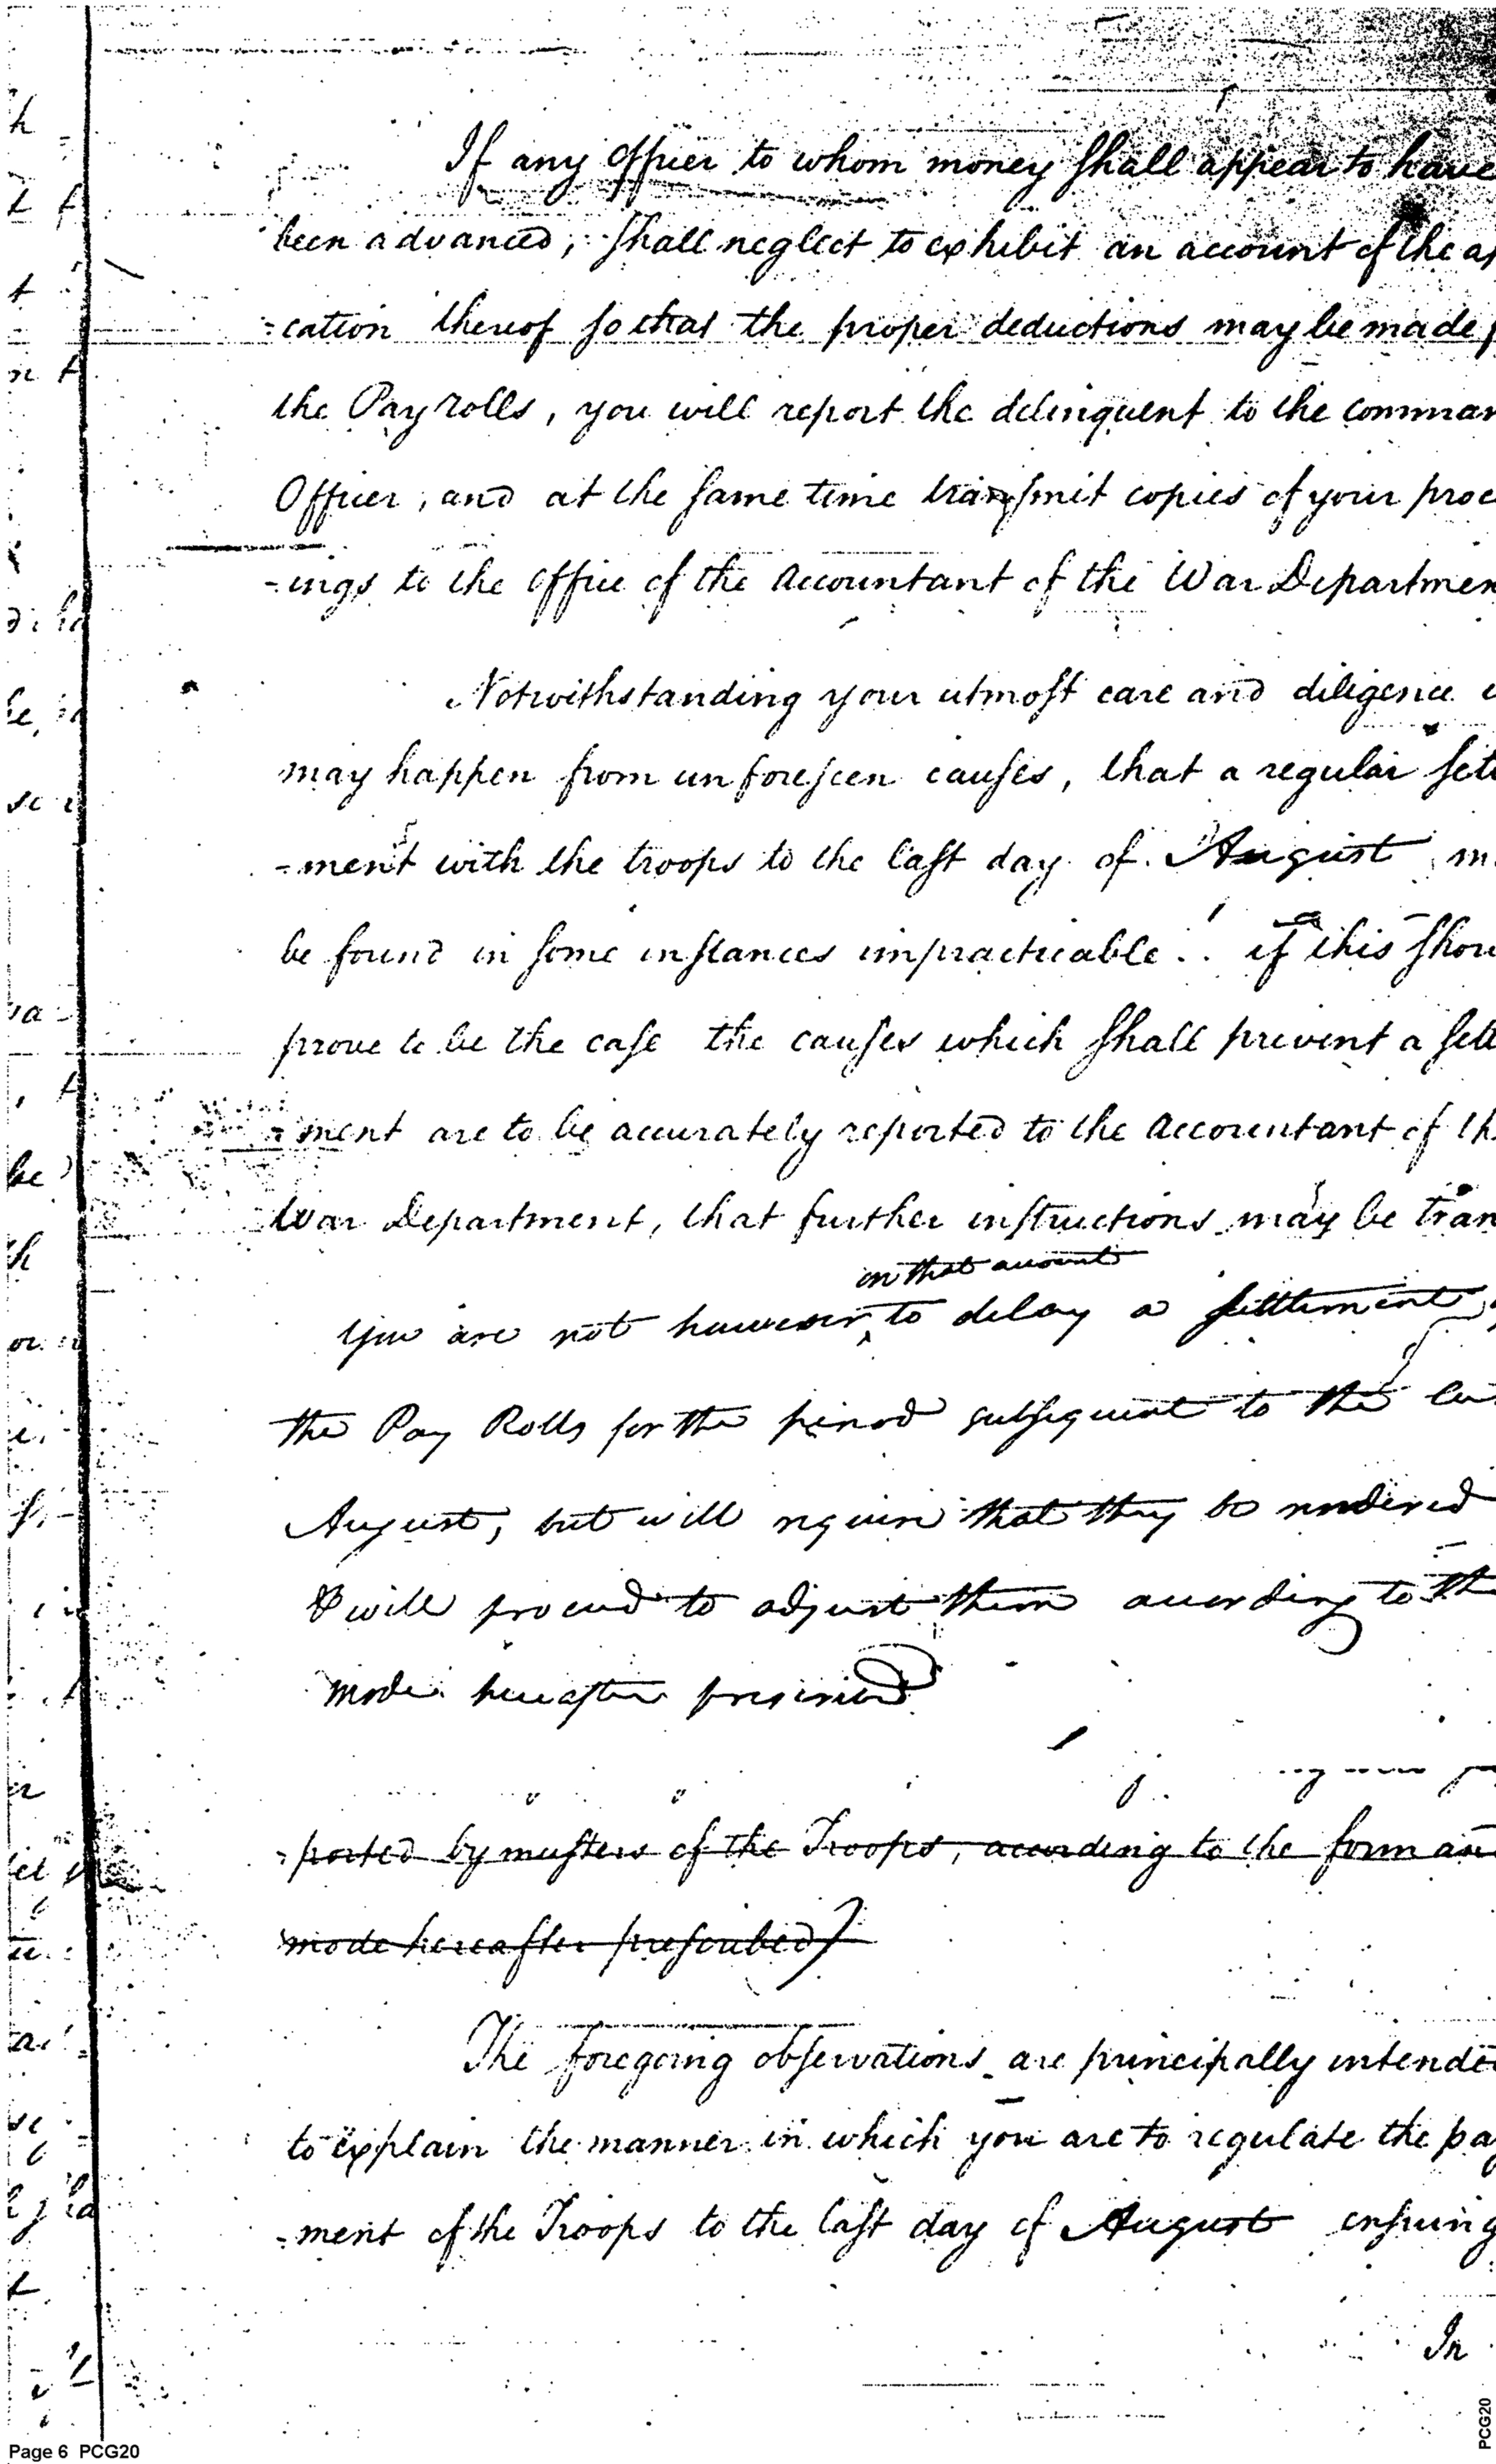 If any Officer to whom money shall appear to have
been advanced, shall neglect to exhibit an account of the ap
=cation thereof so that the proper deductions may be made
the Pay rolls, you will report the delinquent to the comman
Officer, and at the same time transmit copies of your proce
=ings to the Office of the Accountant of the War Departmen
Notwithstanding your utmost care and diligence
may happen from unforeseen causes, that a regular sett
=ment with the troops to the last day of August
be found in some instances impracticable. if this shou
prove to be the case the causes which shall prevent a settl
=ment are to be accurately reported to the Accountant of th
War Department, that further instructions may be tran
on that account
You are not however, to delay a settlement
the Pay Rolls for the period subsequent to the
August, but will require that they be rendered
& will proceed to adjust them according to th
mode hereafter prescribed
=ported by musters of the Troops, according to the form an
mode hereafter prescribed
The foregoing observations are principally intende
to explain the manner in which you are to regulate the pay
=ment of the Troops to the last day of August ensuing
In
Page 6 PCG20
PCG20